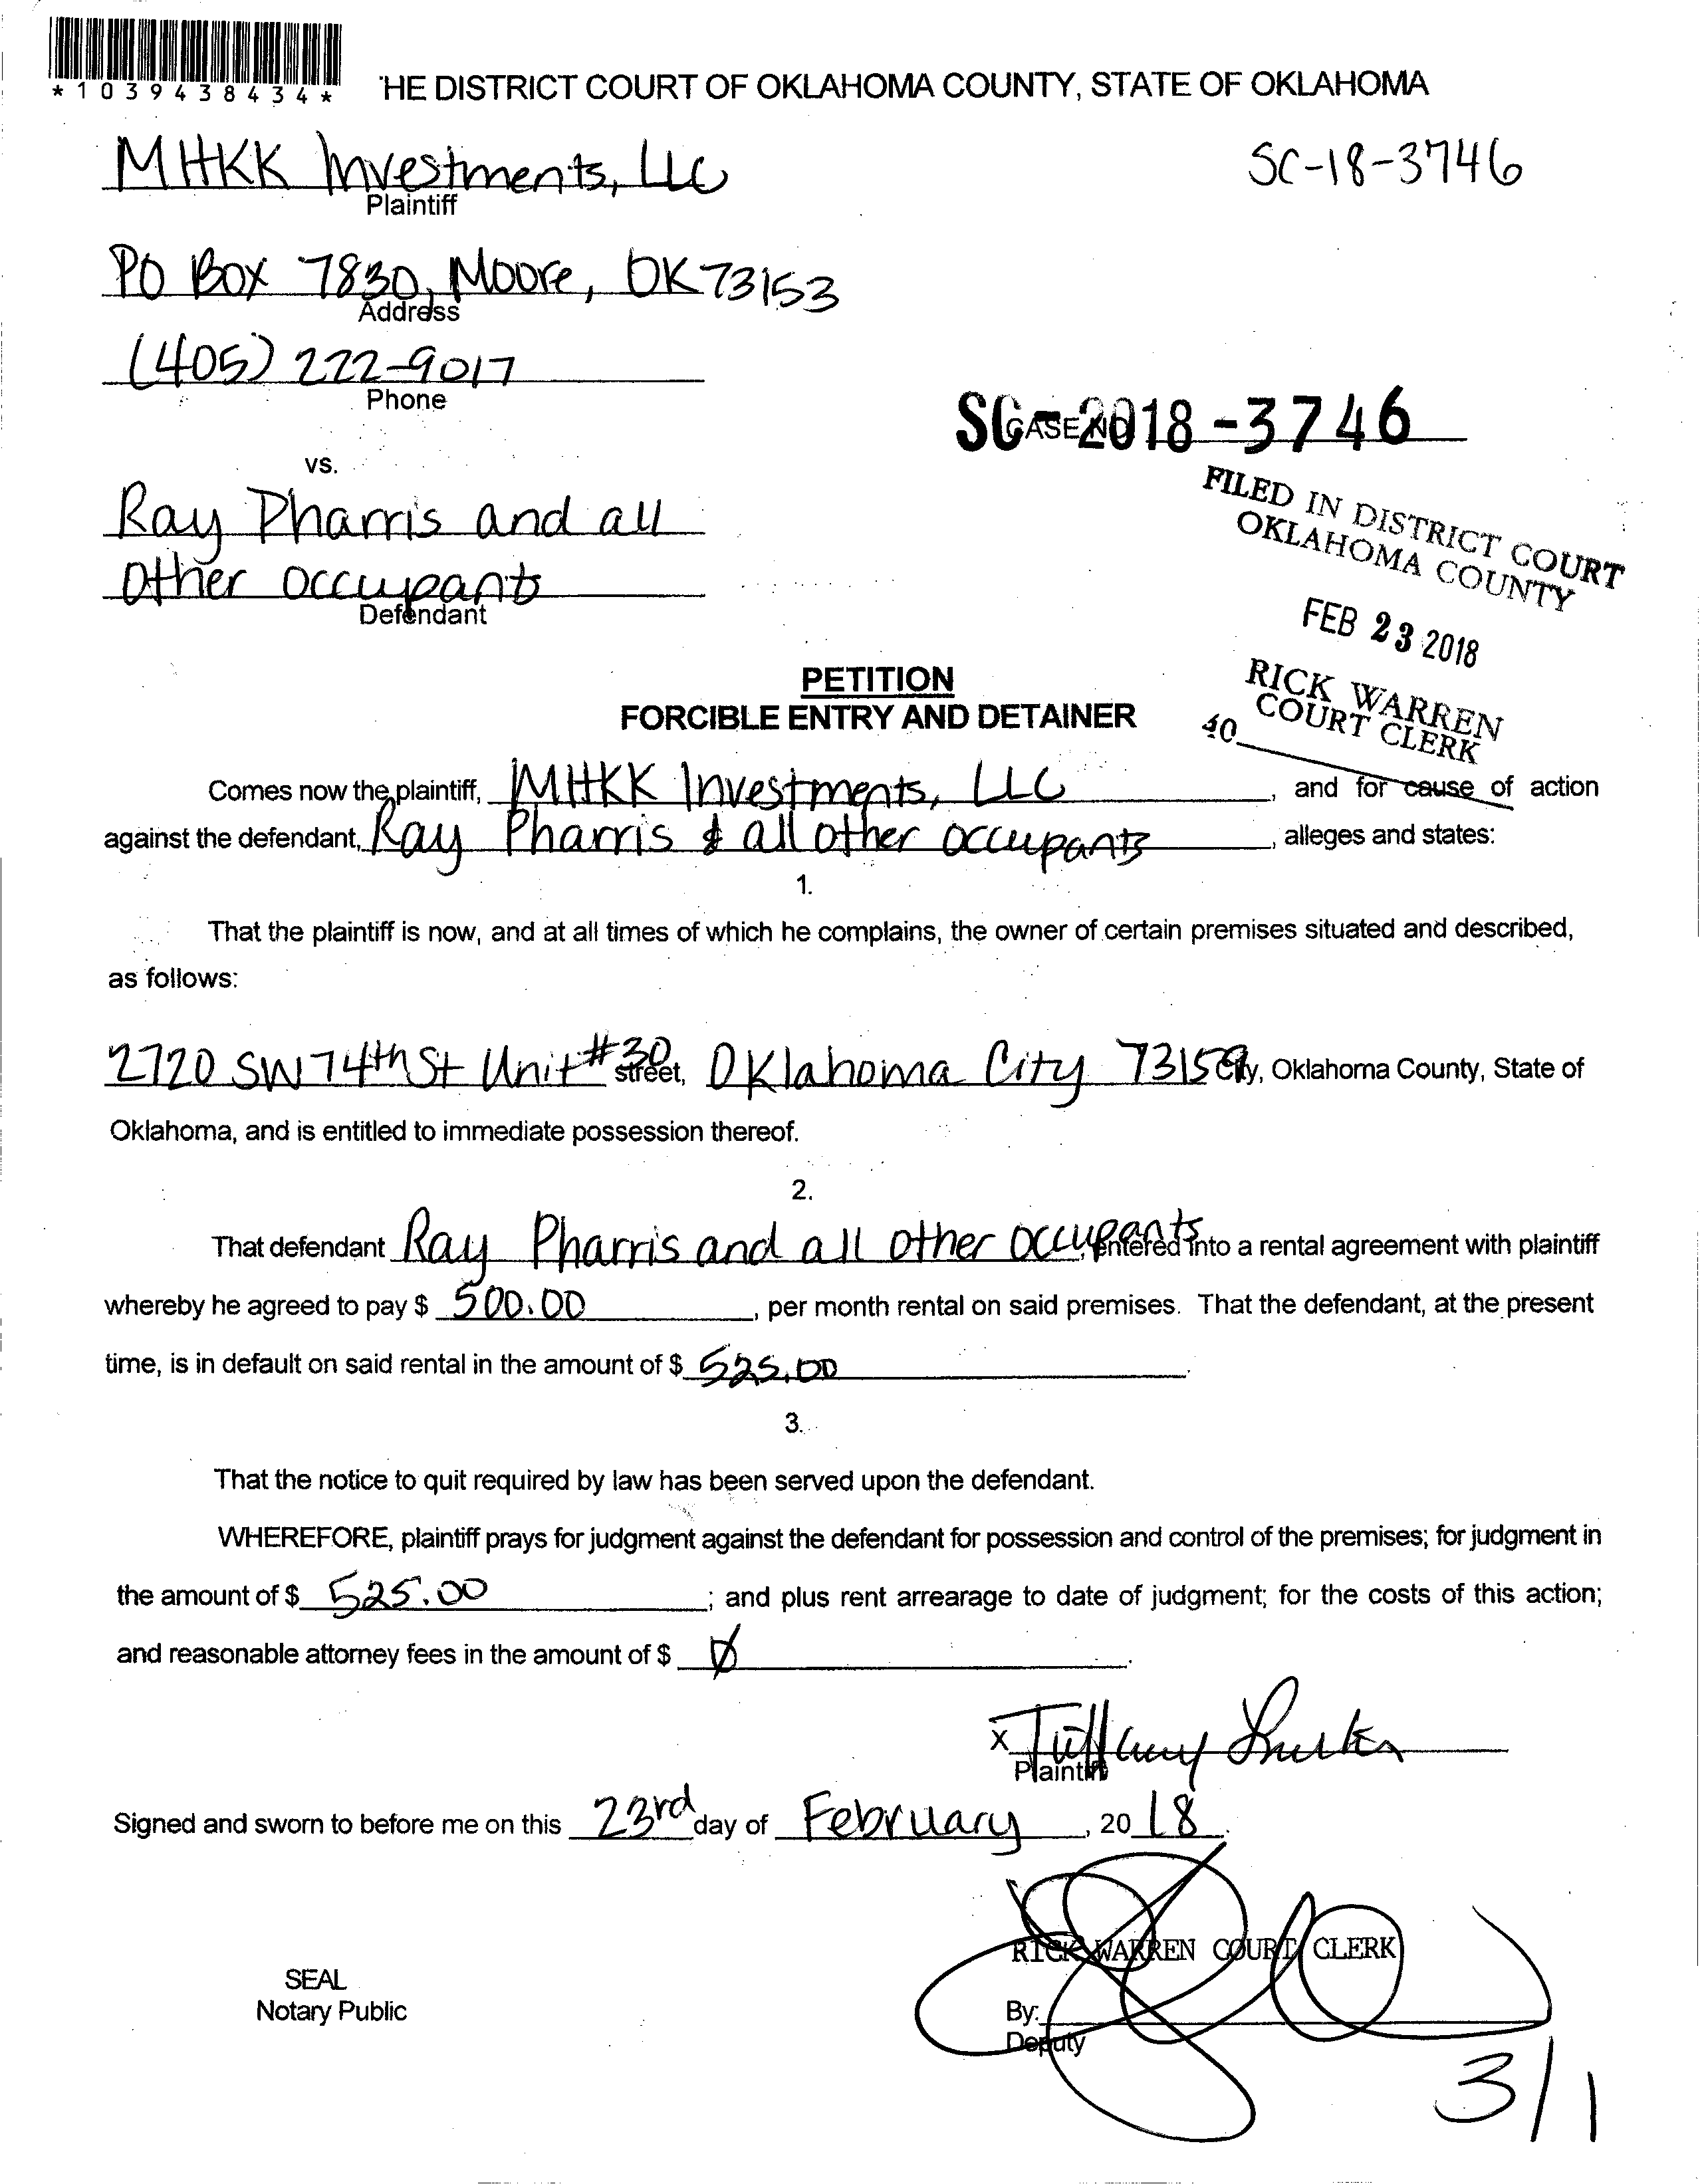 *1039438434*
'HE DISTRICT COURT OF OKLAHOMA COUNTY, STATE OF OKLAHOMA
MHKK Investments, LLC
SC-18-3746
Plaintiff
PO Box 7830, Moore, OK 73153
Address
(405) 222-9017
Phone
SC-2018-3746
CASE NO
vs.
Ray Pharris and all
other occupants
Defendant
FILED IN DISTRICT COURT
OKLAHOMA COUNTY
FEB 23 2018
RICK WARREN
COURT CLERK
40
PETITION
FORCIBLE ENTRY AND DETAINER
Comes now the plaintiff, MHKK Investments, LLC, and for cause of action
against the defendant, Ray Pharris & all other occupants, alleges and states:
1.
That the plaintiff is now, and at all times of which he complains, the owner of certain premises situated and described,
as follows:
2720 SW 74th St Unit #30 street, Oklahoma City 73159 City, Oklahoma County, State of
Oklahoma, and is entitled to immediate possession thereof.
2.
That defendant Ray Pharris and all other occupants, entered into a rental agreement with plaintiff
whereby he agreed to pay $ 500.00, per month rental on said premises. That the defendant, at the present
time, is in default on said rental in the amount of $ 525.00.
3.
That the notice to quit required by law has been served upon the defendant.
WHEREFORE, plaintiff prays for judgment against the defendant for possession and control of the premises; for judgment in
the amount of $ 525.00; and plus rent arrearage to date of judgment; for the costs of this action;
and reasonable attorney fees in the amount of $ Ø.
x Tiffany
Plaintiff
Signed and sworn to before me on this 23rd day of February, 2018.
RICK WARREN COURT CLERK
SEAL
Notary Public
By:
Deputy
3/1